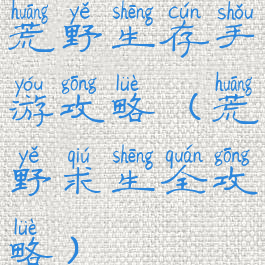 huāng yě shēng cún shǒu
荒野生存手
yóu gōng lüè huāng
游攻略（荒
yě qiú shēng quán gōng
野求生全攻
lüè
略）